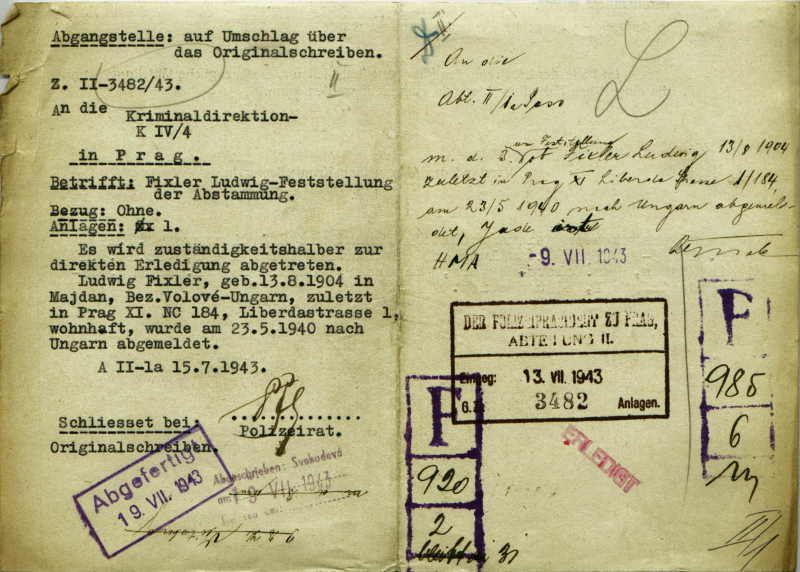 Abgangstelle: auf Umschlag über
das Originalschreiben.
Z. II-3482/43.
II
An die Kriminaldirektion-
K IV/4
in Prag.
Betrifft: Fixler Ludwig-Feststellung
der Abstammung.
Bezug: Ohne.
Anlagen: 1.
Es wird zuständigkeitshalber zur
direkten Erledigung abgetreten.
Ludwig Fixler, geb.13.8.1904 in
Majdan, Bez.Volové-Ungarn, zuletzt
in Prag XI. NC 184, Liberdastrasse 1,
wohnhaft, wurde am 23.5.1940 nach
Ungarn abgemeldet.
A II-1a 15.7.1943.
Schliesset bei:
Polizeirat.
Originalschreiben.
Abgefertigt
19. VII. 1943
Abgeschrieben: Svobodová
am: 19. VII. 1943
II.
L
An die
Abt. II
Fixler Ludwig 13/8 1904
zuletzt in Prag XI Liberda 1/184,
am 23/5 1940 nach Ungarn abgemel-
det, Jude
HMA
-9. VII. 1943
DER POLIZEIPRÄSIDENT ZU PRAG,
ABTEILUNG II.
Eingeg: 13. VII. 1943
G.Z. 3482 Anlagen.
ERLEDIGT
P
985
6
P
920
2